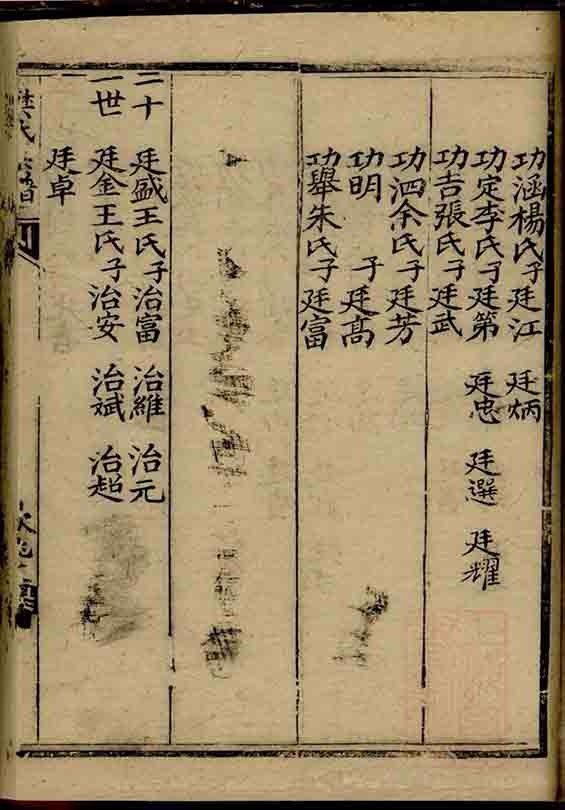 功涵楊氏子廷江 廷炳
功定李氏子廷第 廷忠 廷選 廷耀
功吉張氏子廷武
功泗余氏子廷芳
功明 子廷高
功舉朱氏子廷富
二十 廷盛王氏子治富 治維 治元
一世 廷金王氏子治安 治斌 治超
廷卓
氏 譜